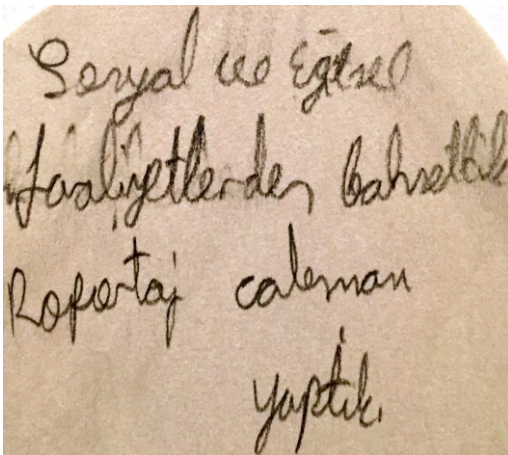 Sosyal ve Eğitsel
faaliyetlerden bahsettik
Roportaj calısması
yaptık.